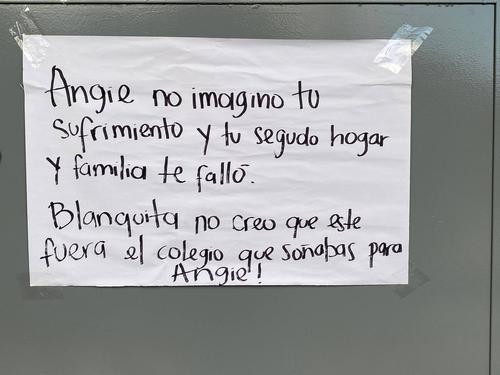 Angie no imagino tu
sufrimiento y tu segudo hogar
y familia te falló.
Blanquita no creo que este
fuera el colegio que soñabas para
Angie!